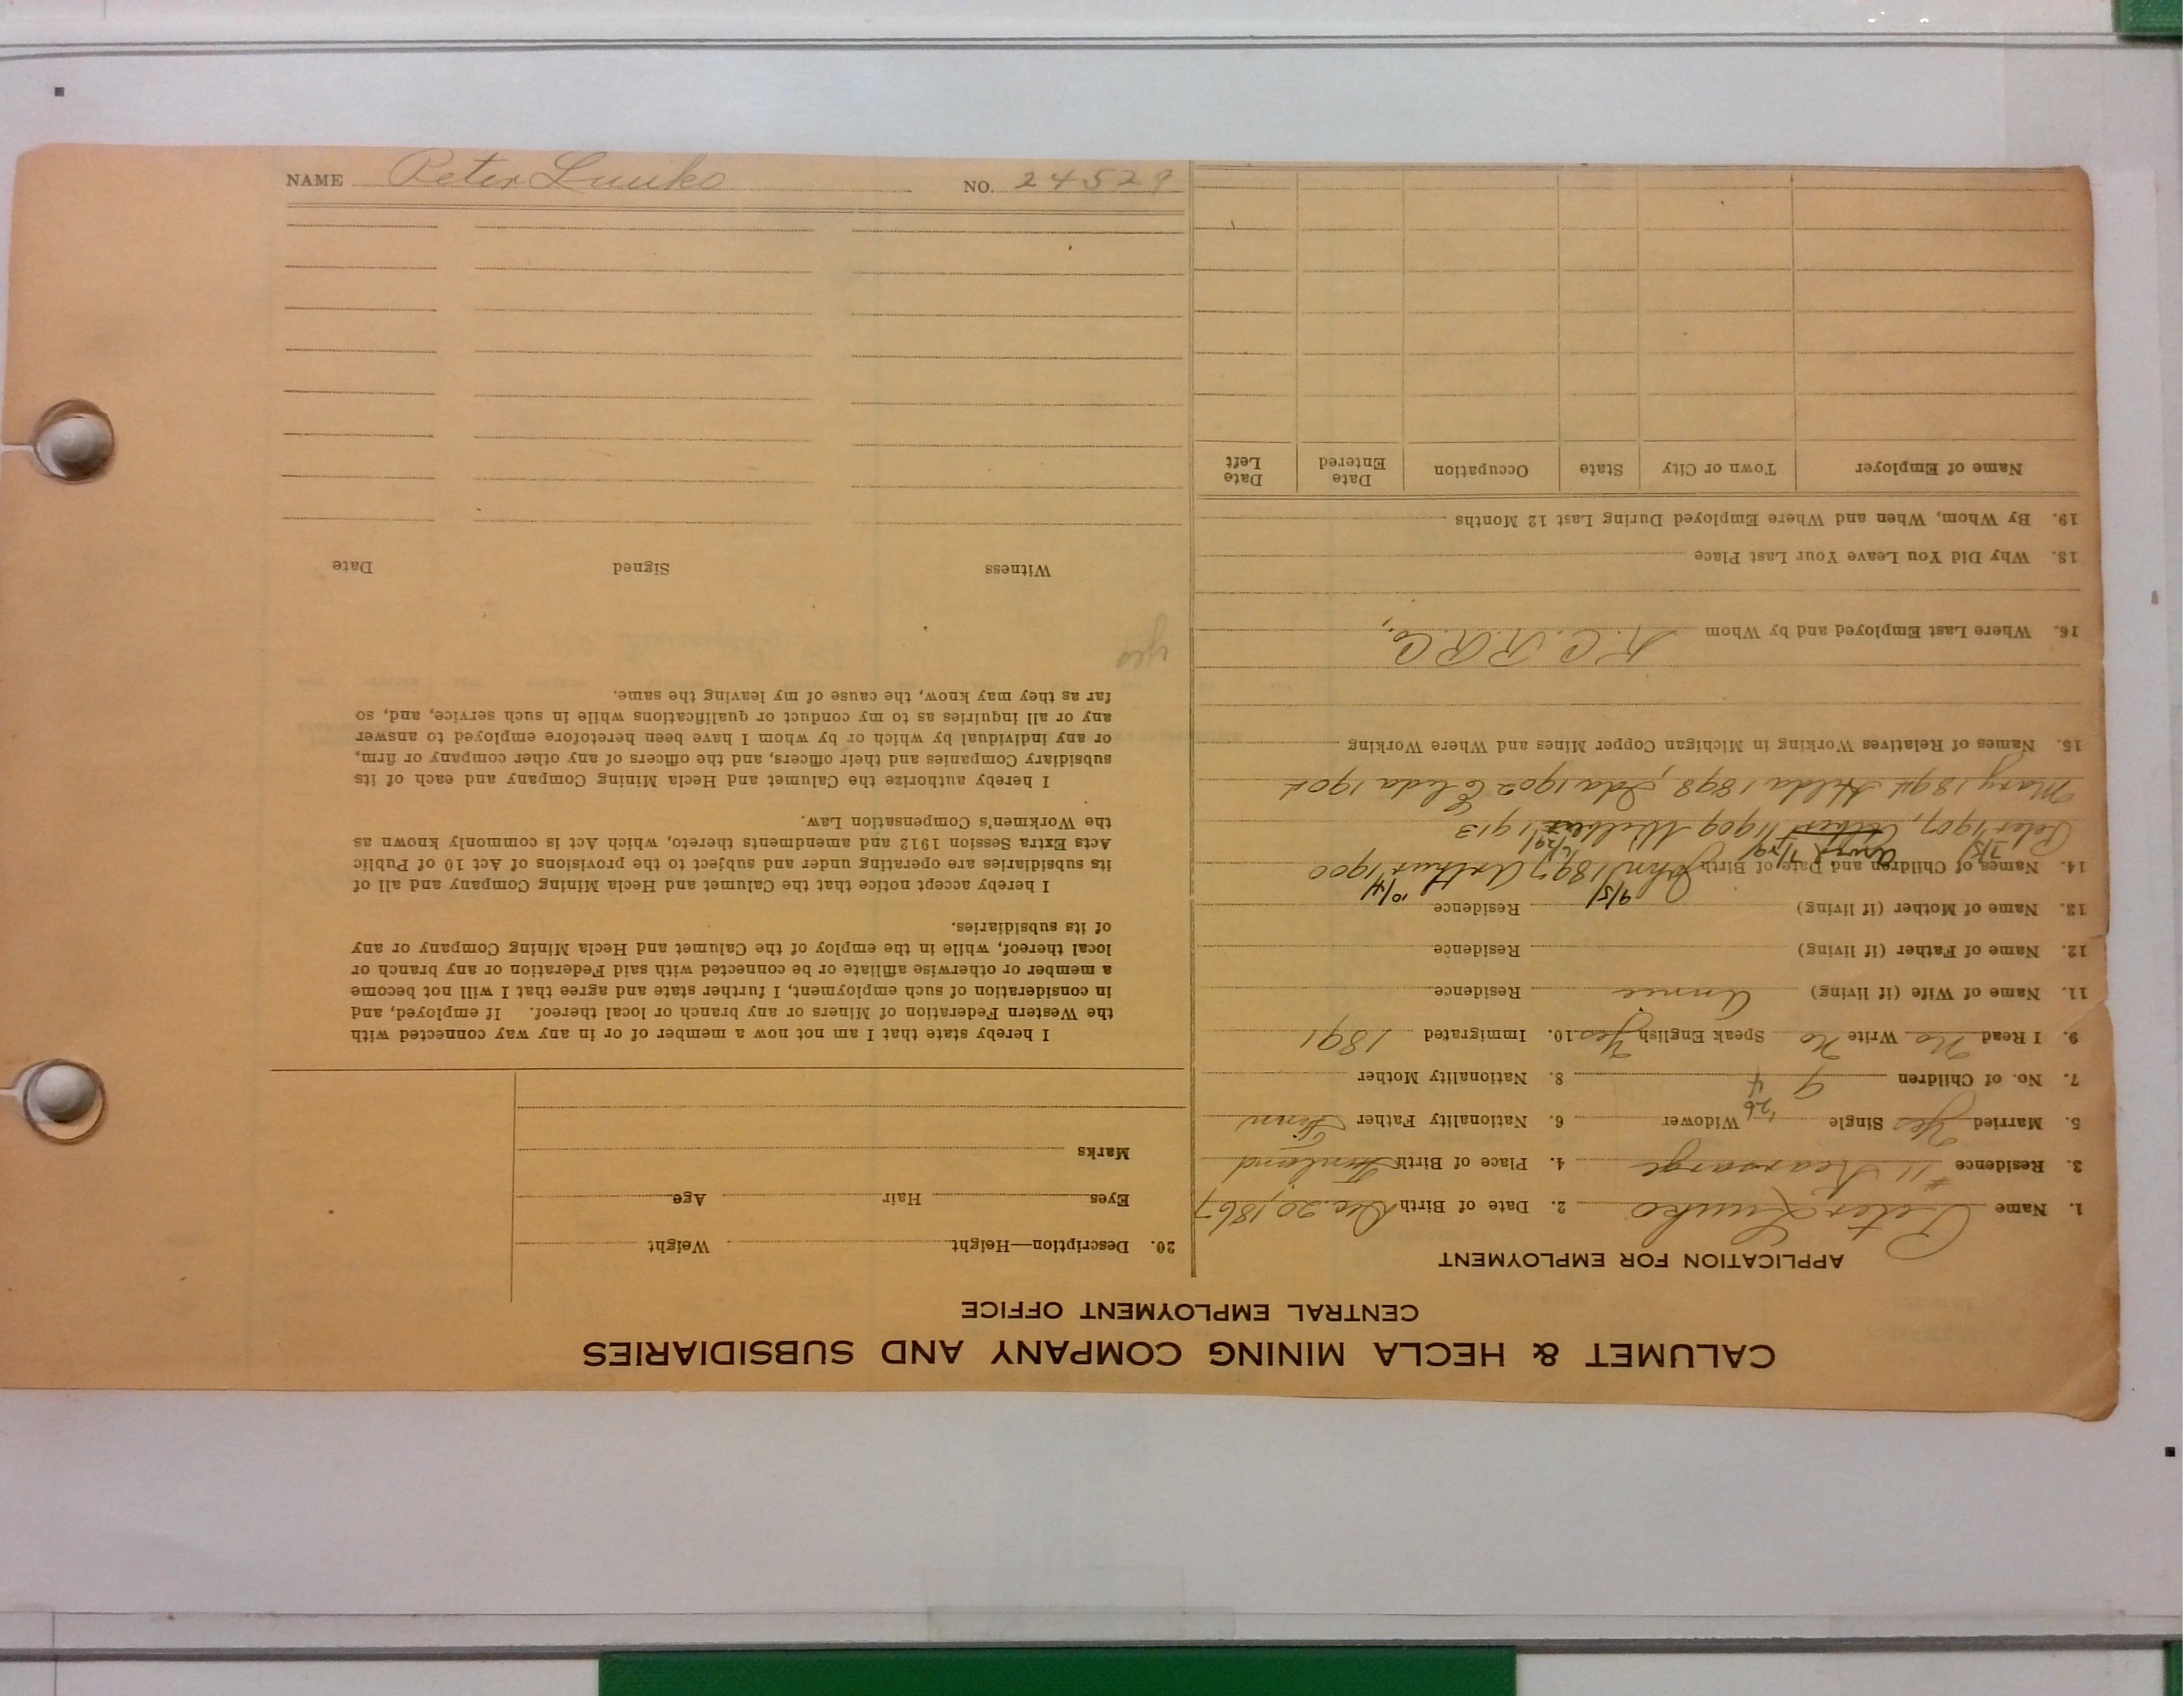 CALUMET & HECLA MINING COMPANY AND SUBSIDIARIES
CENTRAL EMPLOYMENT OFFICE
APPLICATION FOR EMPLOYMENT
1. Name Peter Luuko 2. Date of Birth Dec. 20, 1867
3. Residence #11 Kearsarge 4. Place of Birth Finland
5. Married Yes Single Widower 6. Nationality Father Finn
7. No. of Children 9 8. Nationality Mother
9. I Read No Write No Speak English Yes 10. Immigrated 1891
11. Name of Wife (if living) Annie Residence
12. Name of Father (if living) Residence
13. Name of Mother (if living) Residence
9/5/ 10/4/
14. Names of Children and Date of Birth John 1897 Arthur 1900
Peter 1907, 1909 Wilbert 1913
Mary 1894 Hilda 1898, Ida 1902 Elida 1904
15. Names of Relatives Working in Michigan Copper Mines and Where Working
16. Where Last Employed and by Whom K.C.R.R.Co.,
18. Why Did You Leave Your Last Place
19. By Whom, When and Where Employed During Last 12 Months
Name of Employer Town or City State Occupation Date Entered Date Left
20. Description—Height Weight
Eyes Hair Age
Marks
I hereby state that I am not now a member of or in any way connected with
the Western Federation of Miners or any branch or local thereof. If employed, and
in consideration of such employment, I further state and agree that I will not become
a member or otherwise affiliate or be connected with said Federation or any branch or
local thereof, while in the employ of the Calumet and Hecla Mining Company or any
of its subsidiaries.
I hereby accept notice that the Calumet and Hecla Mining Company and all of
its subsidiaries are operating under and subject to the provisions of Act 10 of Public
Acts Extra Session 1912 and amendments thereto, which Act is commonly known as
the Workmen's Compensation Law.
I hereby authorize the Calumet and Hecla Mining Company and each of its
subsidiary Companies and their officers, and the officers of any other company or firm,
or any individual by which or by whom I have been heretofore employed to answer
any or all inquiries as to my conduct or qualifications while in such service, and, so
far as they may know, the cause of my leaving the same.
yes
Witness Signed Date
NAME Peter Luuko NO. 24529